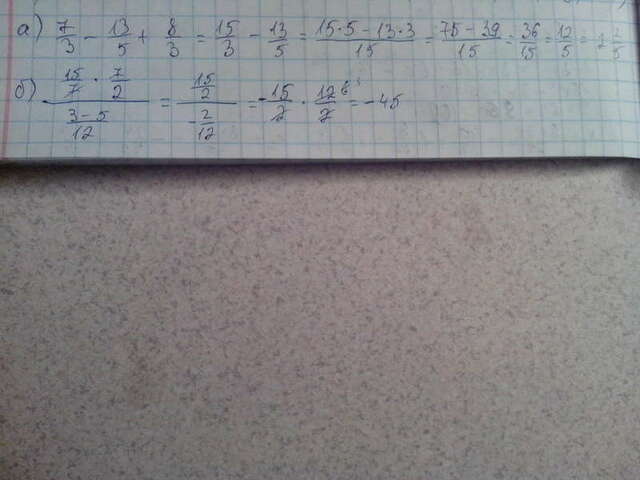 а) 7/3 - 13/5 + 8/3 = 15/3 - 13/5 = (15·5 - 13·3)/15 = (75 - 39)/15 = 36/15 = 12/5 = 2 2/5
б) (15/7 · 7/2)/((3-5)/12) = (15/2)/(-2/12) = -15/2 · 12/2 = -45